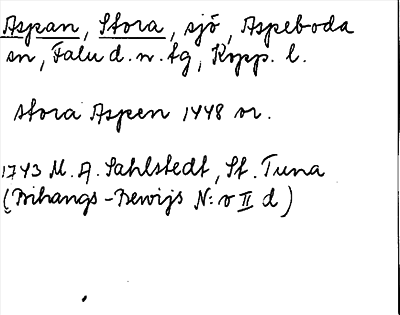 Aspan, Stora, sjö, Aspeboda
sn, Falu d. n. tg, Kopp. l.
Stora Aspen 1448 or.
1743 M. A. Sahlstedt, St. Tuna
(Bihangs-Bewijs N:o II d)